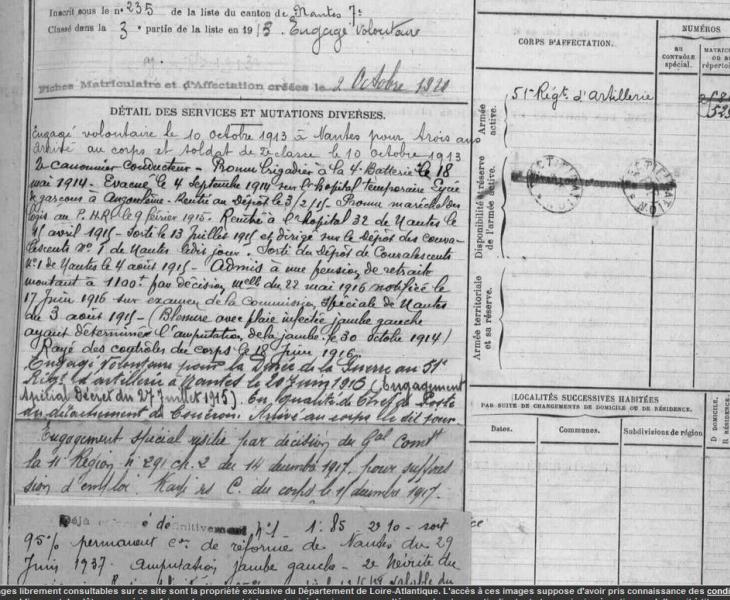 Inscrit sous le n° 235 de la liste du canton de Nantes 7e
Classé dans la 3e partie de la liste en 1913. Engagé Volontaire
Fiches Matriculaire et d'Affectation créées le 2 Octobre 1920
DÉTAIL DES SERVICES ET MUTATIONS DIVERSES.
Engagé volontaire le 10 octobre 1913 à Nantes pour trois ans
arrivé au corps et soldat de 2e classe le 10 octobre 1913
2e canonnier conducteur - Promu brigadier à la 4e Batterie le 18
mai 1914 - Evacué le 4 septembre 1914 sur l'hôpital temporaire Lycée
de garçons à Angoulême - Rentré au Dépôt le 3/2/15 - Promu maréchal des
logis au P.H.R. le 9 février 1915 - Rentré à l'hôpital 32 de Nantes le
avril 1915 - Sorti le 13 Juillet 1915 et dirigé sur le dépôt des conva-
lescents N° 1 de Nantes ledit jour. Sorti du Dépôt de Convalescents
N° 1 de Nantes le 4 août 1915 - Admis à une pension de retraite
montant à 1100f par décision melle du 22 mai 1916 notifiée le
17 Juin 1916 sur examen de la Commission spéciale de Nantes
du 3 août 1915 - (Blessure avec plaie infectée jambe gauche
ayant déterminé l'amputation de la jambe le 30 octobre 1914)
Rayé des contrôles du corps le 18 Juin 1916
Engagé Volontaire pour la Durée de la Guerre au 51e
Régt d'artillerie à Nantes le 20 Juin 1916 (Engagement
spécial Décret du 27 Juillet 1915). En qualité de Chef de Poste
du détachement de Couëron. Arrivé au corps le dit jour
Engagement spécial résilié par décision du Gal Comdt
la 11e Région n° 291 ch. 2 du 14 décembre 1917, pour suppres
sion d'emploi. Rayé des C. du corps le décembre 1917.
Déjà définitivement n° 1 85 2 10
95% permanent Con de réforme de Nantes du 29
Juin 1937. Amputation jambe gauche - 2e Névrite du
CORPS D'AFFECTATION.
NUMÉROS
au
CONTRÔLE
spécial.
MATRIC
ou au
répertoi
Armée
active.
51e Régt d'Artillerie
Disponibilité et réserve
de l'armée active.
Armée territoriale
et sa réserve.
LOCALITÉS SUCCESSIVES HABITÉES
PAR SUITE DE CHANGEMENTS DE DOMICILE OU DE RÉSIDENCE.
Dates.
Communes.
Subdivisions de région
D DOMICILE,
R RÉSIDENCE
ges librement consultables sur ce site sont la propriété exclusive du Département de Loire-Atlantique. L'accès à ces images suppose d'avoir pris connaissance des cond